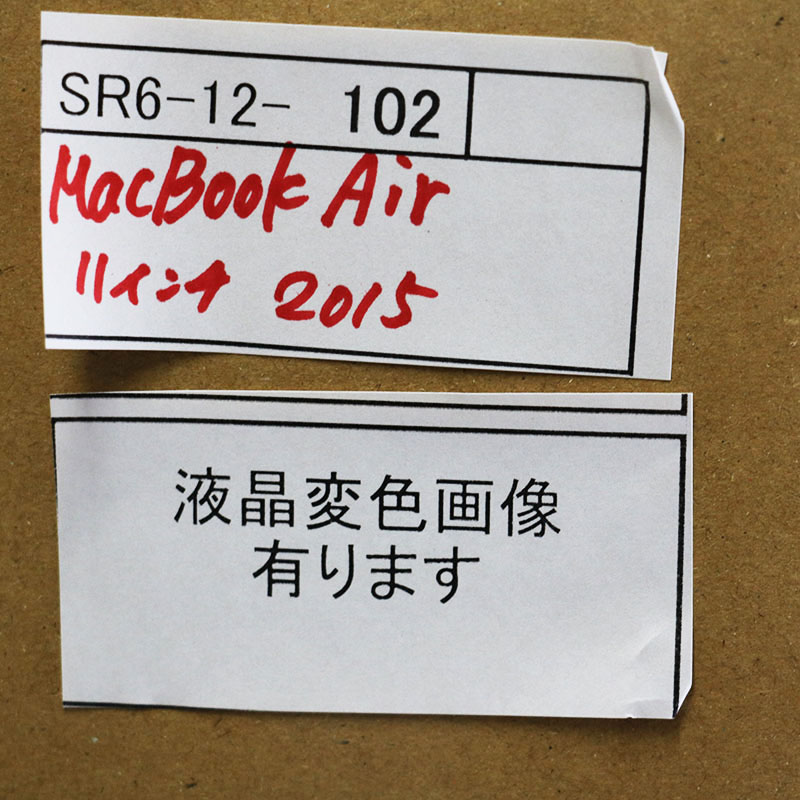 SR6-12- 102
MacBook Air
11インチ 2015
液晶変色画像
有ります